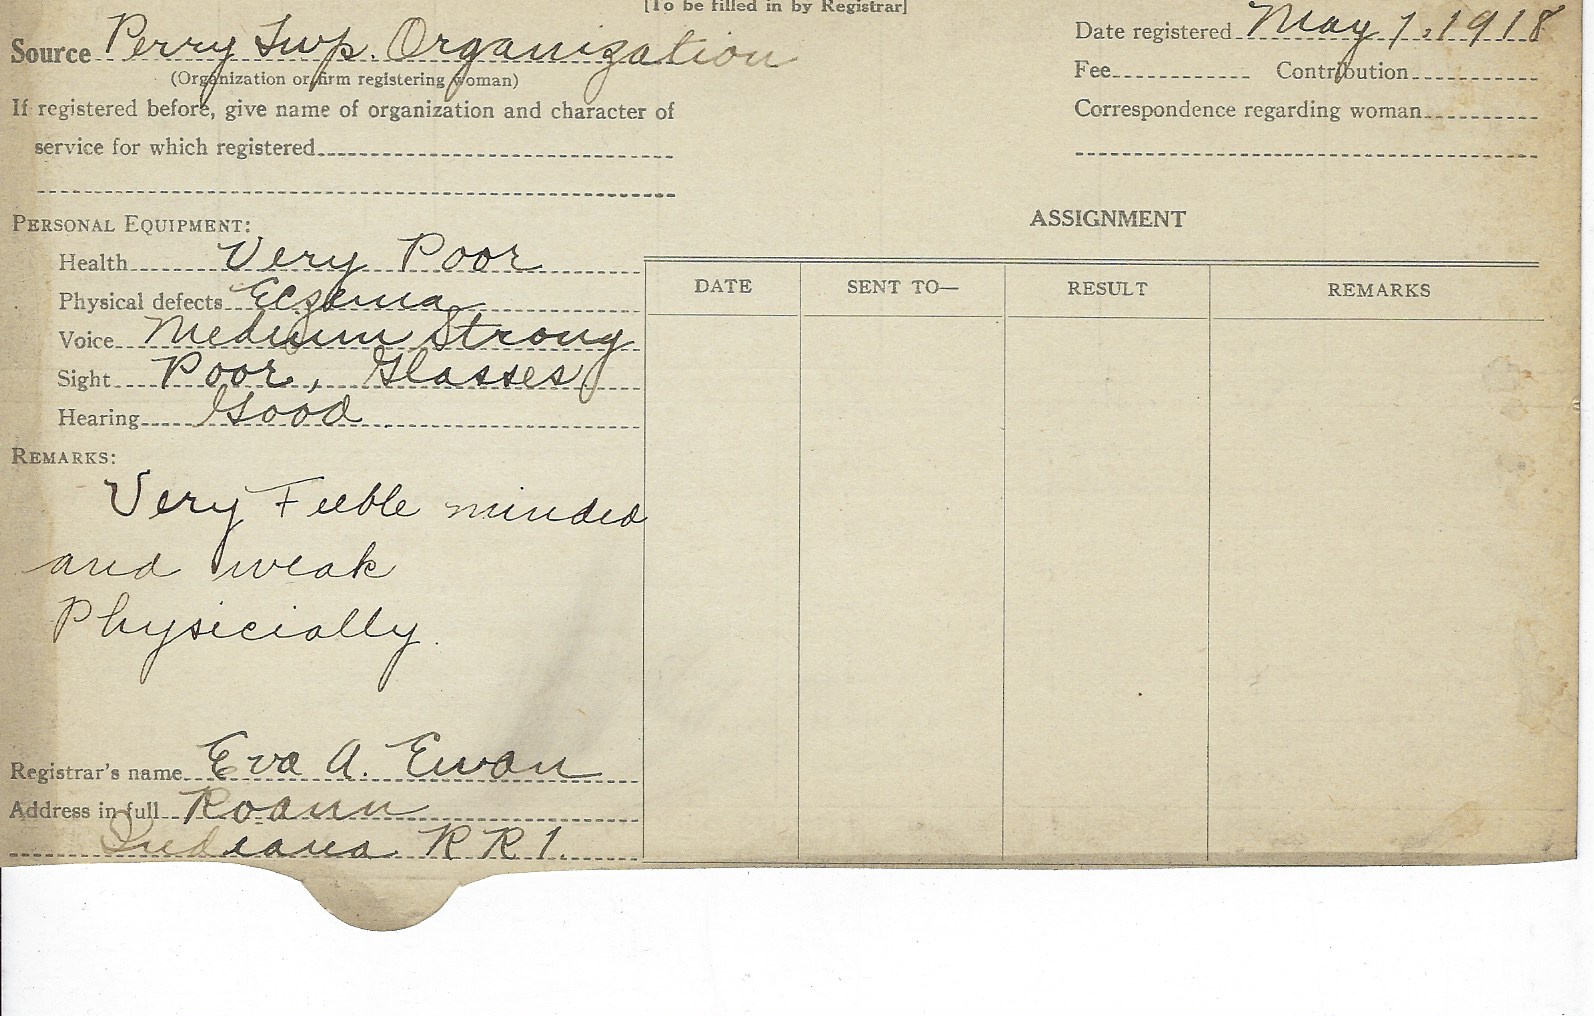 [To be filled in by Registrar]
Source Perry Twp. Organization
(Organization or firm registering woman)
If registered before, give name of organization and character of
service for which registered
Date registered May 1, 1918
Fee Contribution
Correspondence regarding woman
PERSONAL EQUIPMENT:
Health Very Poor
Physical defects Eczema
Voice Medium Strong
Sight Poor, Glasses
Hearing Good
REMARKS:
Very Feeble minded
and weak
Physicially.
Registrar's name Eva A. Ewan
Address in full Roann
Indiana R R 1.
ASSIGNMENT
DATE SENT TO— RESULT REMARKS